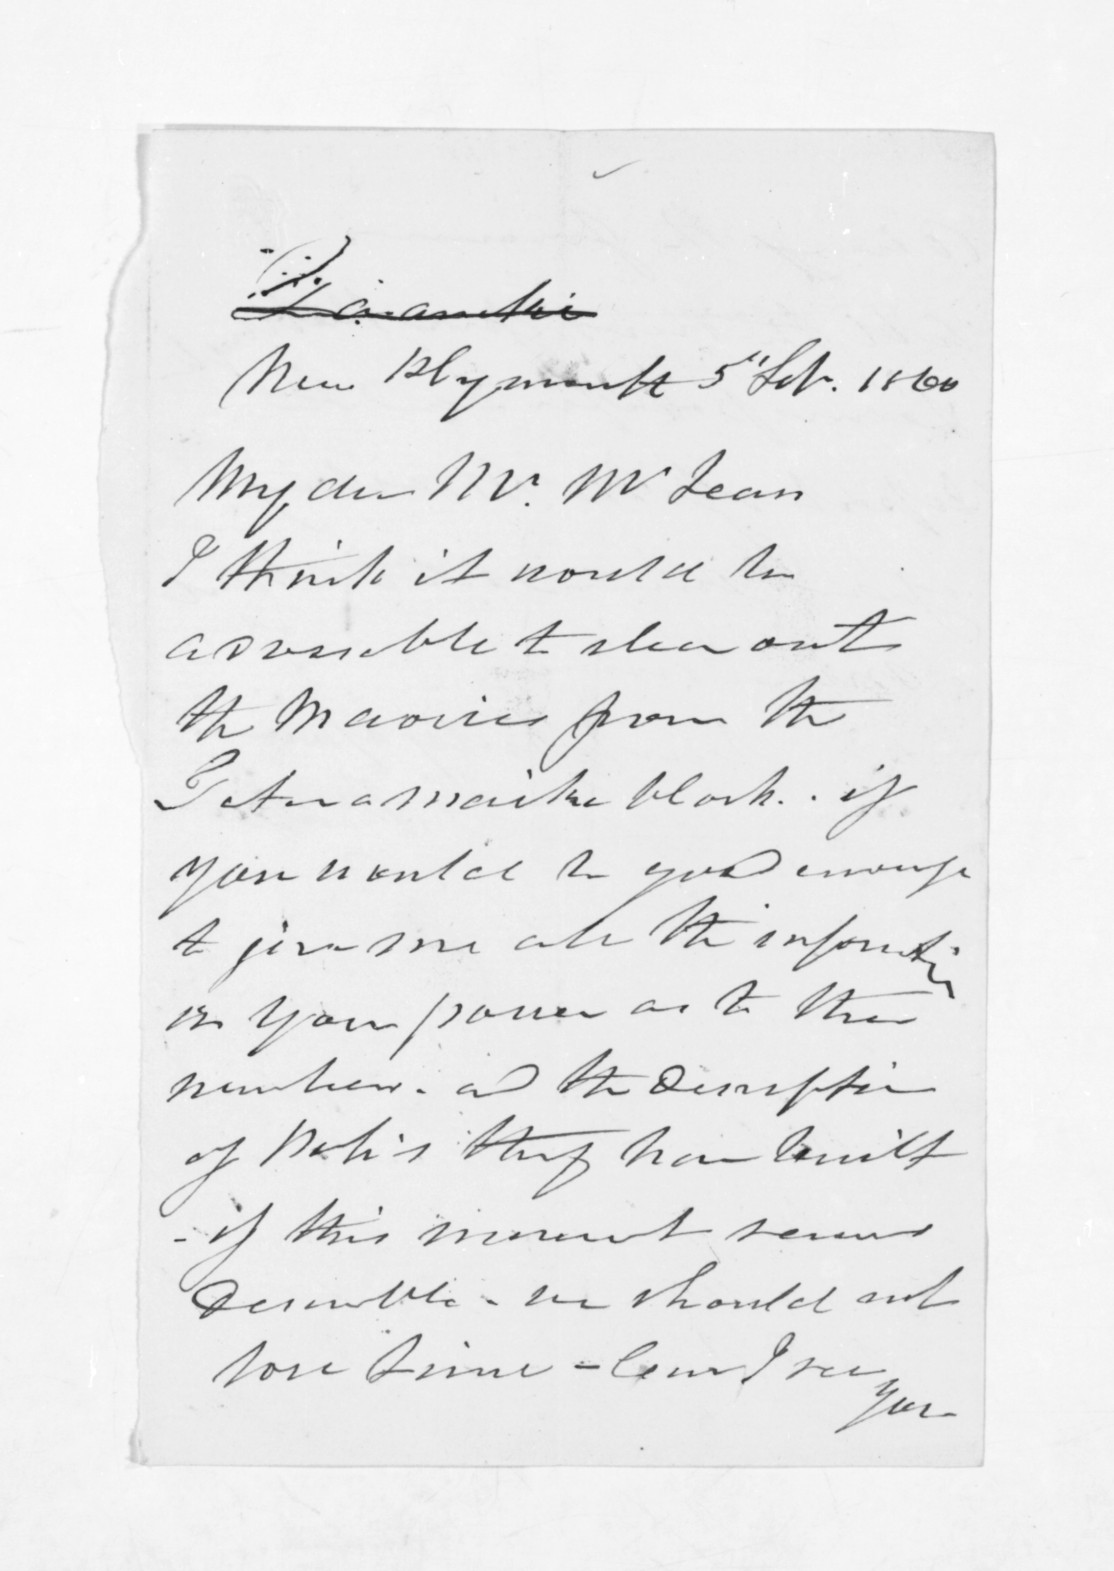 Taranaki
New Plymouth 5th Sep. 1860
My dear Mr. McLean
I think it would be
advisable to clear out
the Maories from the
Tataramaika block. if
you would be good enough
to give me all the information
in your power as to their
numbers. and the description
of Pah's they have built
- if this movement seems
desirable - we should not
lose time - Can I see
you